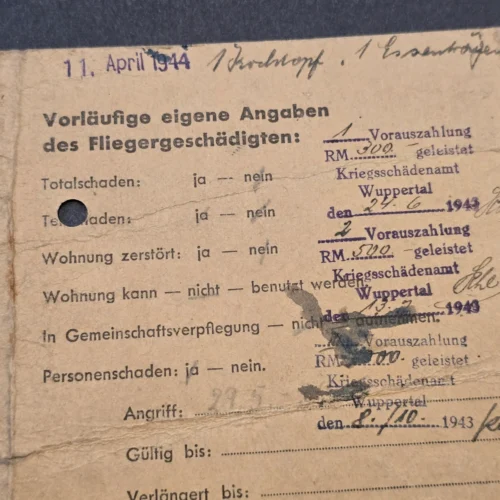 11. April 1944 1 Kochtopf, 1 Essenträger
Vorläufige eigene Angaben
des Fliegergeschädigten:
1 Vorauszahlung
RM 300.- geleistet
Kriegsschädenamt
Wuppertal
den 24.6. 1943
Totalschaden: ja — nein
Teilschaden: ja — nein
2 Vorauszahlung
RM 500.- geleistet
Kriegsschädenamt
Wuppertal
den 13.7. 1943
Wohnung zerstört: ja — nein
Wohnung kann — nicht — benutzt werden.
In Gemeinschaftsverpflegung — nicht aufnehmen.
Vorauszahlung
RM geleistet
Kriegsschädenamt
Wuppertal
den 8./10. 1943
Personenschaden: ja — nein.
Angriff: 29.5.
Gültig bis:
Verlängert bis: